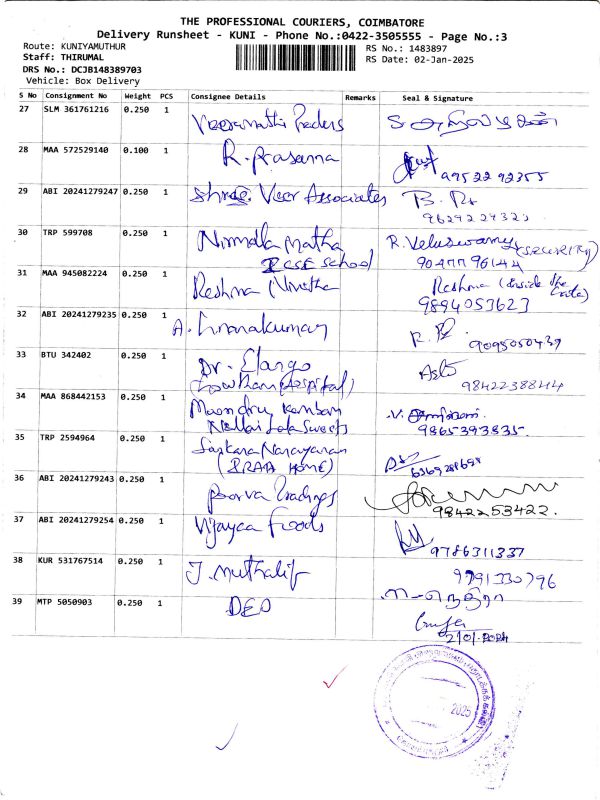 THE PROFESSIONAL COURIERS, COIMBATORE
Delivery Runsheet - KUNI - Phone No.:0422-3505555 - Page No.:3
Route: KUNIYAMUTHUR
RS No.: 1483897
Staff: THIRUMAL
RS Date: 02-Jan-2025
DRS No.: DCJB148389703
Vehicle: Box Delivery
S No Consignment No Weight PCS Consignee Details Remarks Seal & Signature
27 SLM 361761216 0.250 1
28 MAA 572529140 0.100 1 R. Prasanna
9952292355
29 ABI 20241279247 0.250 1 Shree Veer Associates
30 TRP 599708 0.250 1 Nirmala Matha
School
R. Veluswamy (SECURITY)
9047796144
31 MAA 945082224 0.250 1 Reshma
Reshma (Inside the
9894053623
32 ABI 20241279235 0.250 1 A.
9095050439
33 BTU 342402 0.250 1 Dr. Elango
(Gowtham Hospital)
9842238844
34 MAA 868442153 0.250 1
Nellai Lala Sweets
9865393835
35 TRP 2594964 0.250 1 Sankara Narayanan
36 ABI 20241279243 0.250 1 Poorva Tradings
9842253422.
37 ABI 20241279254 0.250 1 Vijayaa Foods
9786311337
38 KUR 531767514 0.250 1 J. Muthalif
9791330796
39 MTP 5050903 0.250 1 DEO
2025